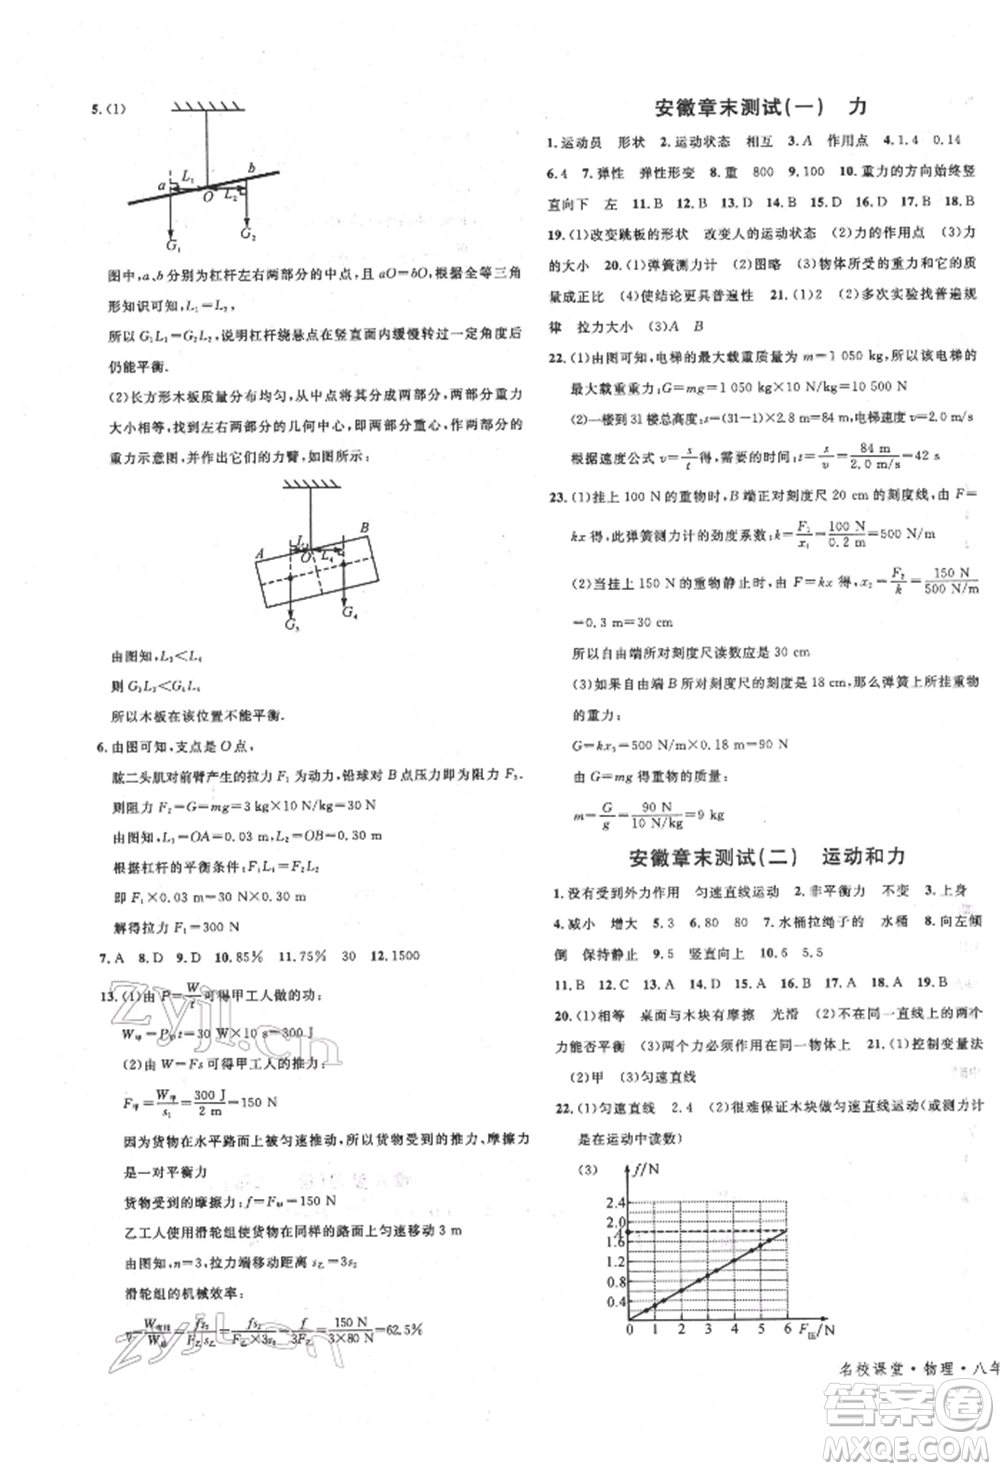 5.(1)
a L₁ b
O L₂
G₁ G₂
图中,a、b分别为杠杆左右两部分的中点,且aO=bO,根据全等三角
形知识可知,L₁=L₂,
所以G₁L₁=G₂L₂,说明杠杆绕悬点在竖直面内缓慢转过一定角度后
仍能平衡.
(2)长方形木板质量分布均匀,从中点将其分成两部分,两部分重力
大小相等,找到左右两部分的几何中心,即两部分重心,作两部分的
重力示意图,并作出它们的力臂,如图所示:
A L₃ O L₄ B
G₃ G₄
由图知,L₃<L₄
则G₃L₃<G₄L₄
所以木板在该位置不能平衡.
6.由图可知,支点是O点,
肱二头肌对前臂产生的拉力F₁为动力,铅球对B点压力即为阻力F₂.
则阻力F₂=G=mg=3 kg×10 N/kg=30 N
由图知,L₁=OA=0.03 m,L₂=OB=0.30 m
根据杠杆的平衡条件:F₁L₁=F₂L₂
即F₁×0.03 m=30 N×0.30 m
解得拉力F₁=300 N
7.A 8.D 9.D 10.85% 11.75% 30 12.1500
13.(1)由P=W/t可得甲工人做的功:
W甲=P甲t=30 W×10 s=300 J
(2)由W=Fs可得甲工人的推力:
F甲=W甲/s₁=300 J/2 m=150 N
因为货物在水平路面上被匀速推动,所以货物受到的推力、摩擦力
是一对平衡力
货物受到的摩擦力:f=F甲=150 N
乙工人使用滑轮组使货物在同样的路面上匀速移动3 m
由图知,n=3,拉力端移动距离s乙=3s₂
滑轮组的机械效率:
η=W有用/W总=fs₂/F乙s乙=fs₂/F乙×3s₂=f/3F乙=150 N/3×80 N=62.5%
安徽章末测试(一) 力
1.运动员 形状 2.运动状态 相互 3.A 作用点 4.1.4 0.14
6.4 7.弹性 弹性形变 8.重 800 9.100 10.重力的方向始终竖
直向下 左 11.B 12.B 13.D 14.B 15.A 16.D 17.B 18.B
19.(1)改变跳板的形状 改变人的运动状态 (2)力的作用点 (3)力
的大小 20.(1)弹簧测力计 (2)图略 (3)物体所受的重力和它的质
量成正比 (4)使结论更具普遍性 21.(1)2 (2)多次实验找普遍规
律 拉力大小 (3)A B
22.(1)由图可知,电梯的最大载重质量为m=1 050 kg,所以该电梯的
最大载重重力:G=mg=1 050 kg×10 N/kg=10 500 N
(2)一楼到31楼总高度:s=(31-1)×2.8 m=84 m,电梯速度v=2.0 m/s
根据速度公式v=s/t得,需要的时间:t=s/v=84 m/2.0 m/s=42 s
23.(1)挂上100 N的重物时,B端正对刻度尺20 cm的刻度线,由F=
kx得,此弹簧测力计的劲度系数:k=F₁/x₁=100 N/0.2 m=500 N/m
(2)当挂上150 N的重物静止时,由F=kx得,x₂=F₂/k=150 N/500 N/m
=0.3 m=30 cm
所以自由端所对刻度尺读数应是30 cm
(3)如果自由端B所对的刻度是18 cm,那么弹簧上所挂重物
的重力:
G=kx₃=500 N/m×0.18 m=90 N
由G=mg得重物的质量:
m=G/g=90 N/10 N/kg=9 kg
安徽章末测试(二) 运动和力
1.没有受到外力作用 匀速直线运动 2.非平衡力 不变 3.上身
4.减小 增大 5.3 6.80 80 7.水桶拉绳子的 水桶 8.向左倾
倒 保持静止 9.5 竖直向上 10.6 5.5
11.B 12.C 13.B 14.C 15.D 16.A 17.A 18.A 19.B
20.(1)相等 桌面与木块有摩擦 光滑 (2)不在同一直线上的两个
力能否平衡 (3)两个力必须作用在同一物体上 21.(1)控制变量法
(2)甲 (3)匀速直线
22.(1)匀速直线 2.4 (2)很难保证木块做匀速直线运动(或测力计
是在运动中读数)
(3) f/N
2.4
2.0
1.6
1.2
0.8
0.4
0 1 2 3 4 5 6 F压/N
名校课堂·物理·八年
答案圈
MXQE.COM
zyjl.cn
zyjl.cn